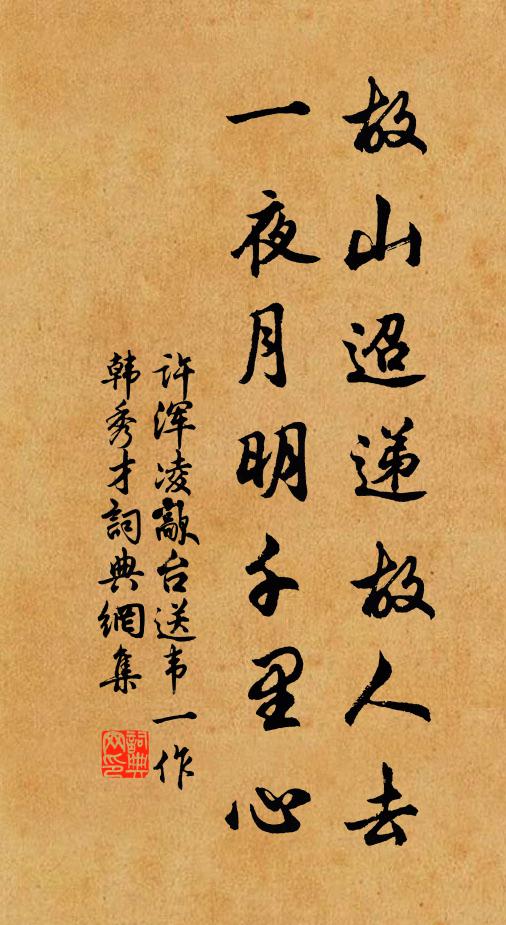 故山迢递故人去
一夜月明千里心
许浑凌歊台送韦一作
韩秀才詞典網集
詞典网印